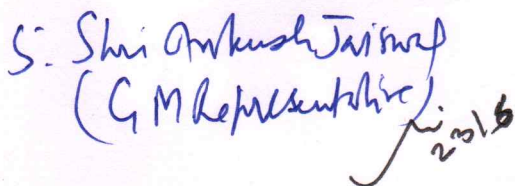 5. Shri Ankush Jaiswal
(GM Representative)
23/8